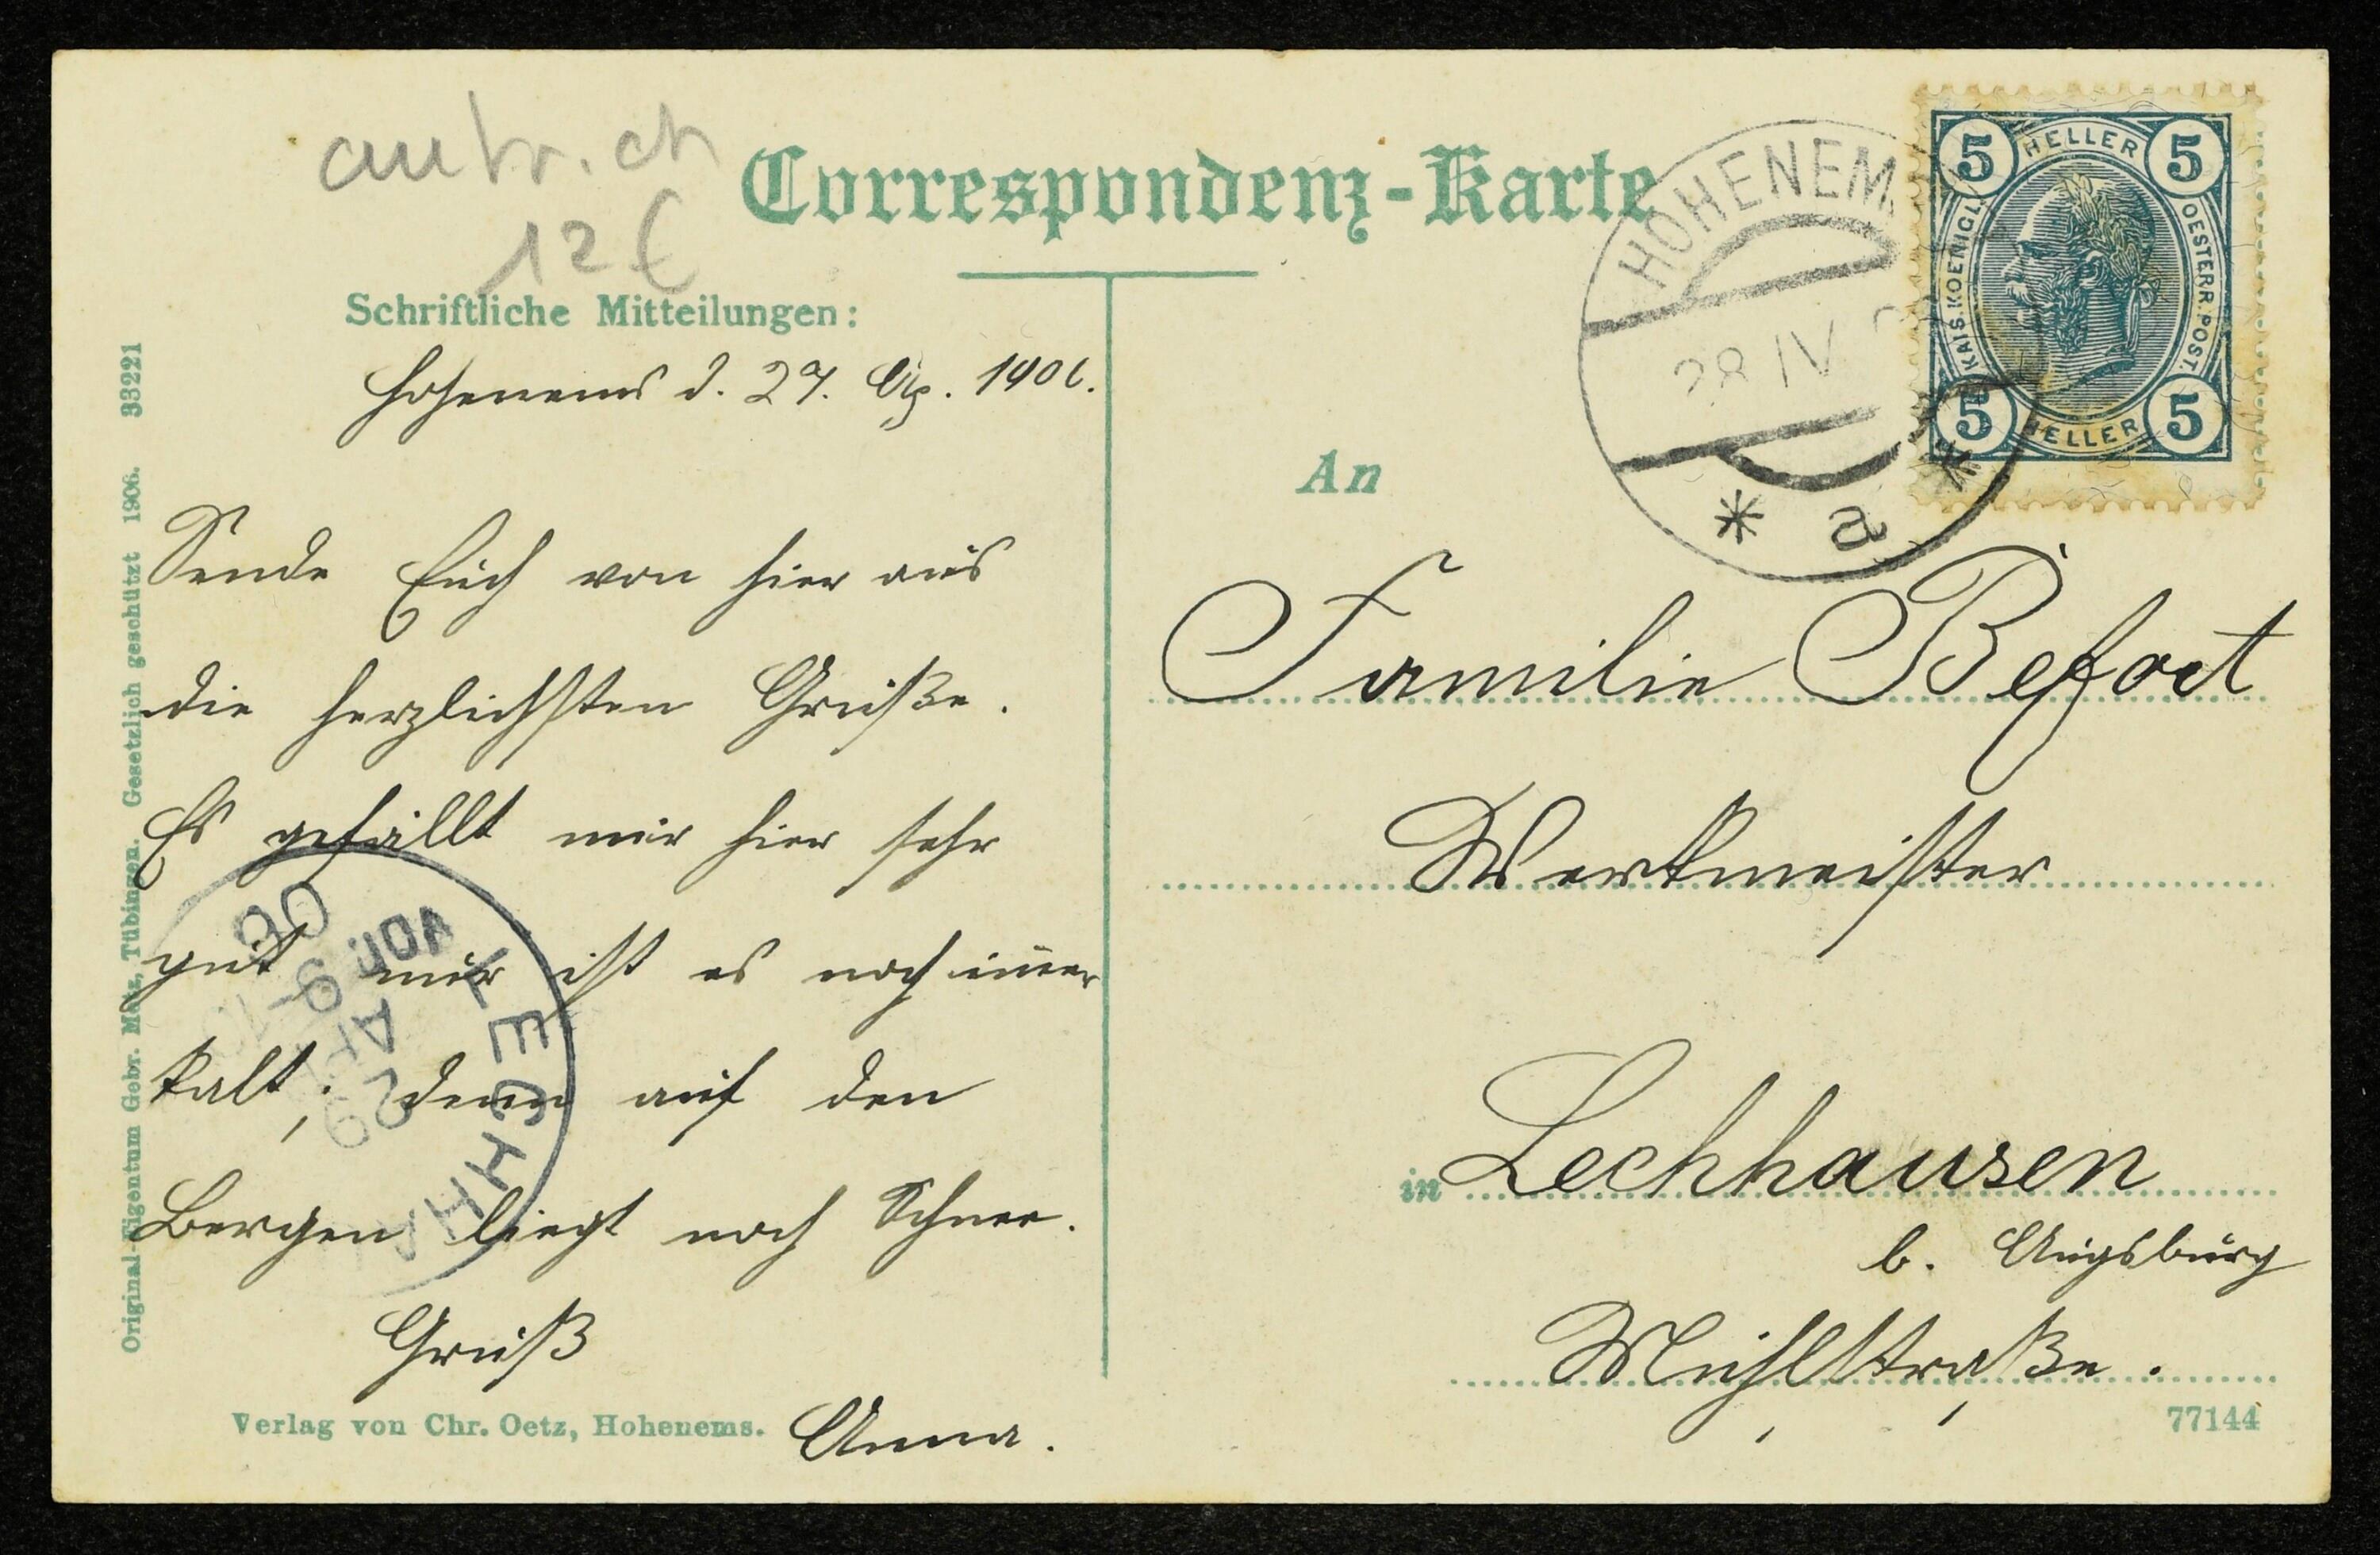 autr. ch
12 €
Correspondenz-Karte
Schriftliche Mitteilungen:
Hohenems d. 27. Ap. 1906.
Sende Euch von hier aus
die herzlichsten Grüße.
Es gefällt mir hier sehr
gut mir ist es noch im̄er
kalt, denn auf den
Bergen liegt noch Schnee.
Gruß
Anna.
Verlag von Chr. Oetz, Hohenems.
Original-Eigentum Gebr. Metz, Tübingen. Gesetzlich geschützt 1906. 33221
LECHHA
29
APR
VOR. 9-10
06
HOHENEM
28 IV
* a *
5 HELLER 5
KAIS. KOENIGL. OESTERR. POST.
5 HELLER 5
An
Familie Befort
Werkmeister
in Lechhausen
b. Augsburg
Mühlstraße.
77144